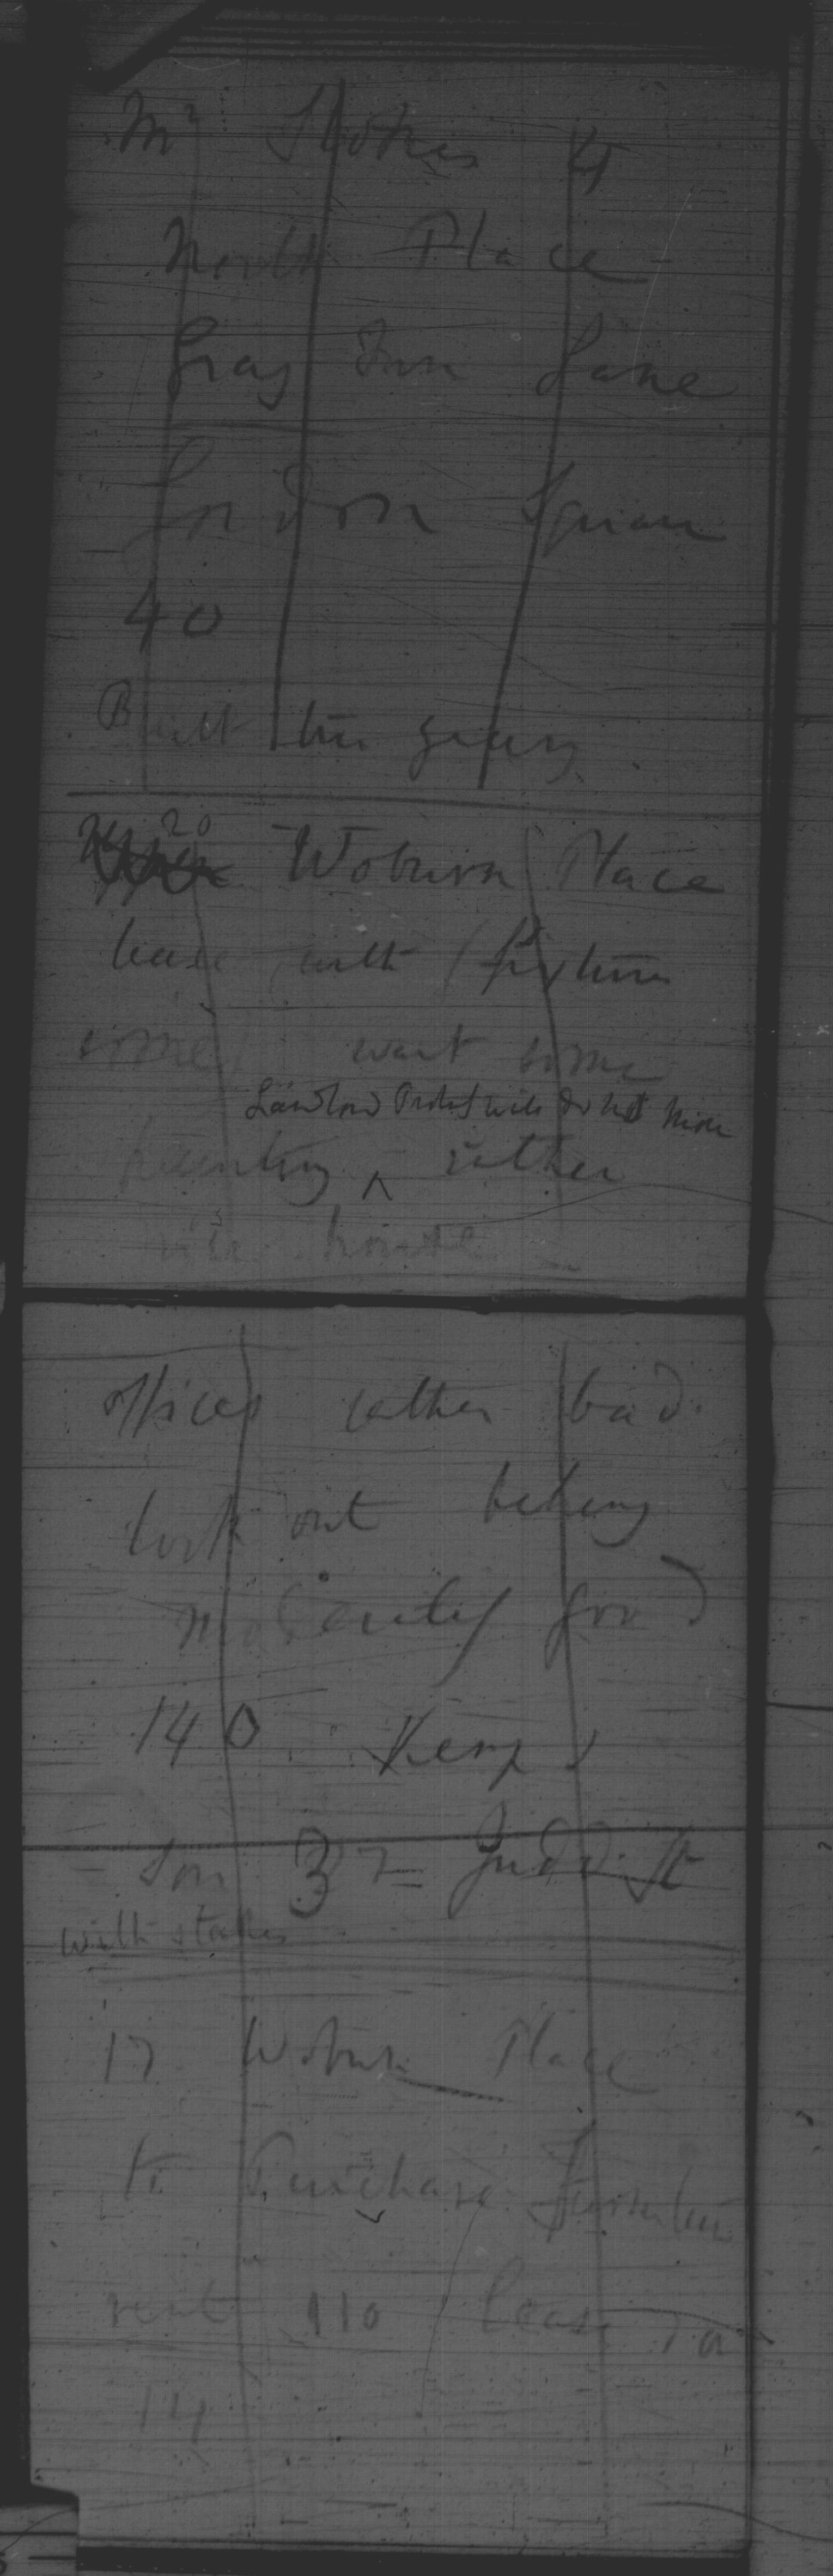 Mr Stokes 4
North Place
Grays Inn Lane
Gordon Square
40
Built this years
20 Woburn Place
lease with fixtures
some want some
Landlord will do no more
painting ^ rather
nice house
offices rather bad.
look out behind
moderately good
140 Kemp &
Son 37 = Judd St
with stables
17 Woburn Place
to Purchase furniture
rent 110 lease 7 or
14